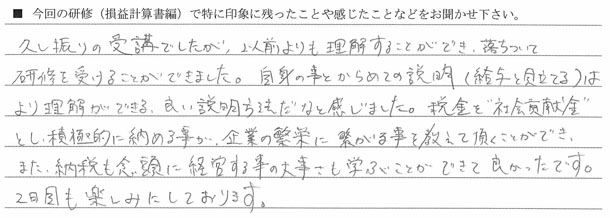 ■ 今回の研修（損益計算書編）で特に印象に残ったことや感じたことなどをお聞かせ下さい。
久し振りの受講でしたが、以前よりも理解することができ、落ちついて
研修を受けることができました。自身の事とからめての説明（給与と見立てる）は
より理解ができる、良い説明方法だなと感じました。税金を"社会貢献金"
とし、積極的に納める事が、企業の繁栄に繋がる事を教えて頂くことができ、
また、納税も念頭に経営する事の大事さも学ぶことができて良かったです。
2日目も楽しみにしております。